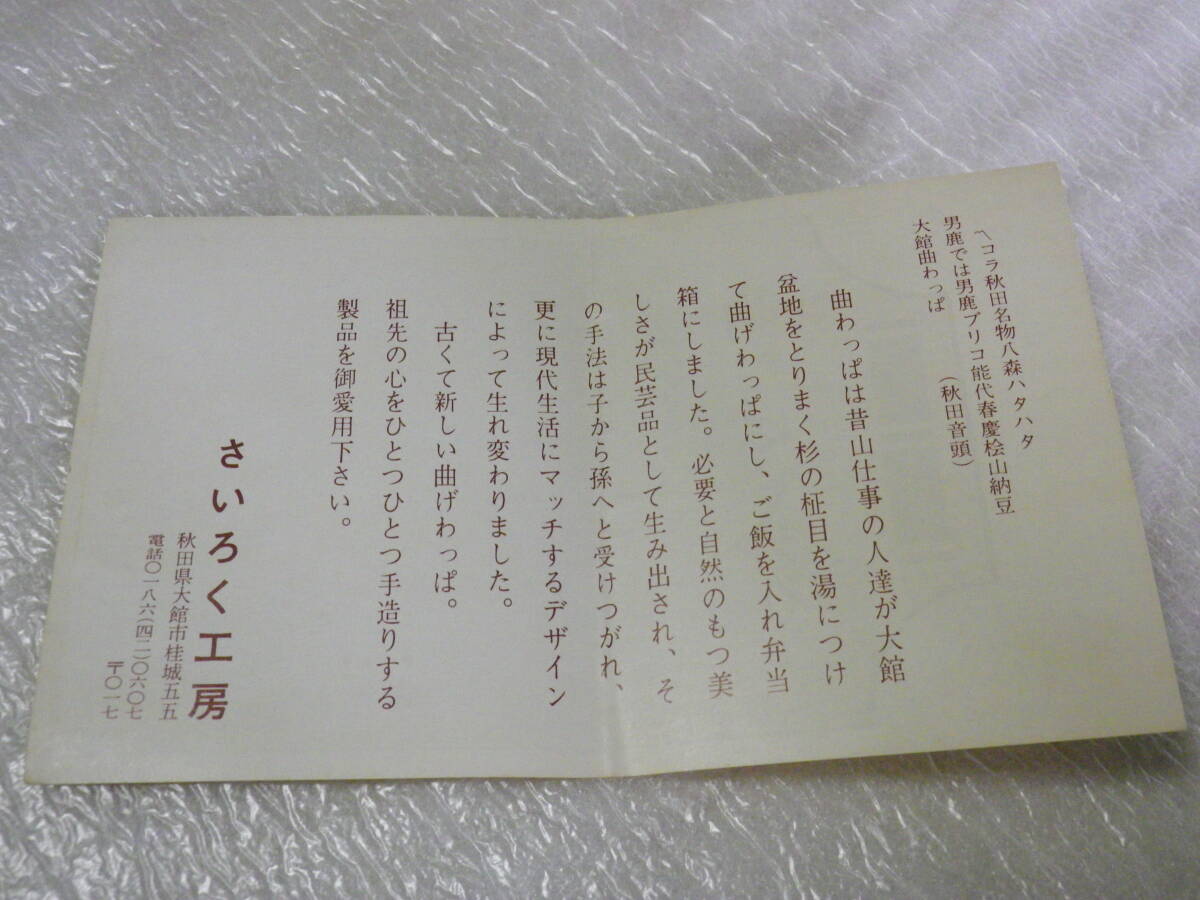 〽コラ秋田名物八森ハタハタ
男鹿では男鹿ブリコ能代春慶桧山納豆
大館曲わっぱ　　　（秋田音頭）
曲わっぱは昔山仕事の人達が大館
盆地をとりまく杉の柾目を湯につけ
て曲げわっぱにし、ご飯を入れ弁当
箱にしました。必要と自然のもつ美
しさが民芸品として生み出され、そ
の手法は子から孫へと受けつがれ、
更に現代生活にマッチするデザイン
によって生れ変わりました。
古くて新しい曲げわっぱ。
祖先の心をひとつひとつ手造りする
製品を御愛用下さい。
さいろく工房
秋田県大館市桂城五五
電話〇一八六(四二)〇六〇七
〒〇一七